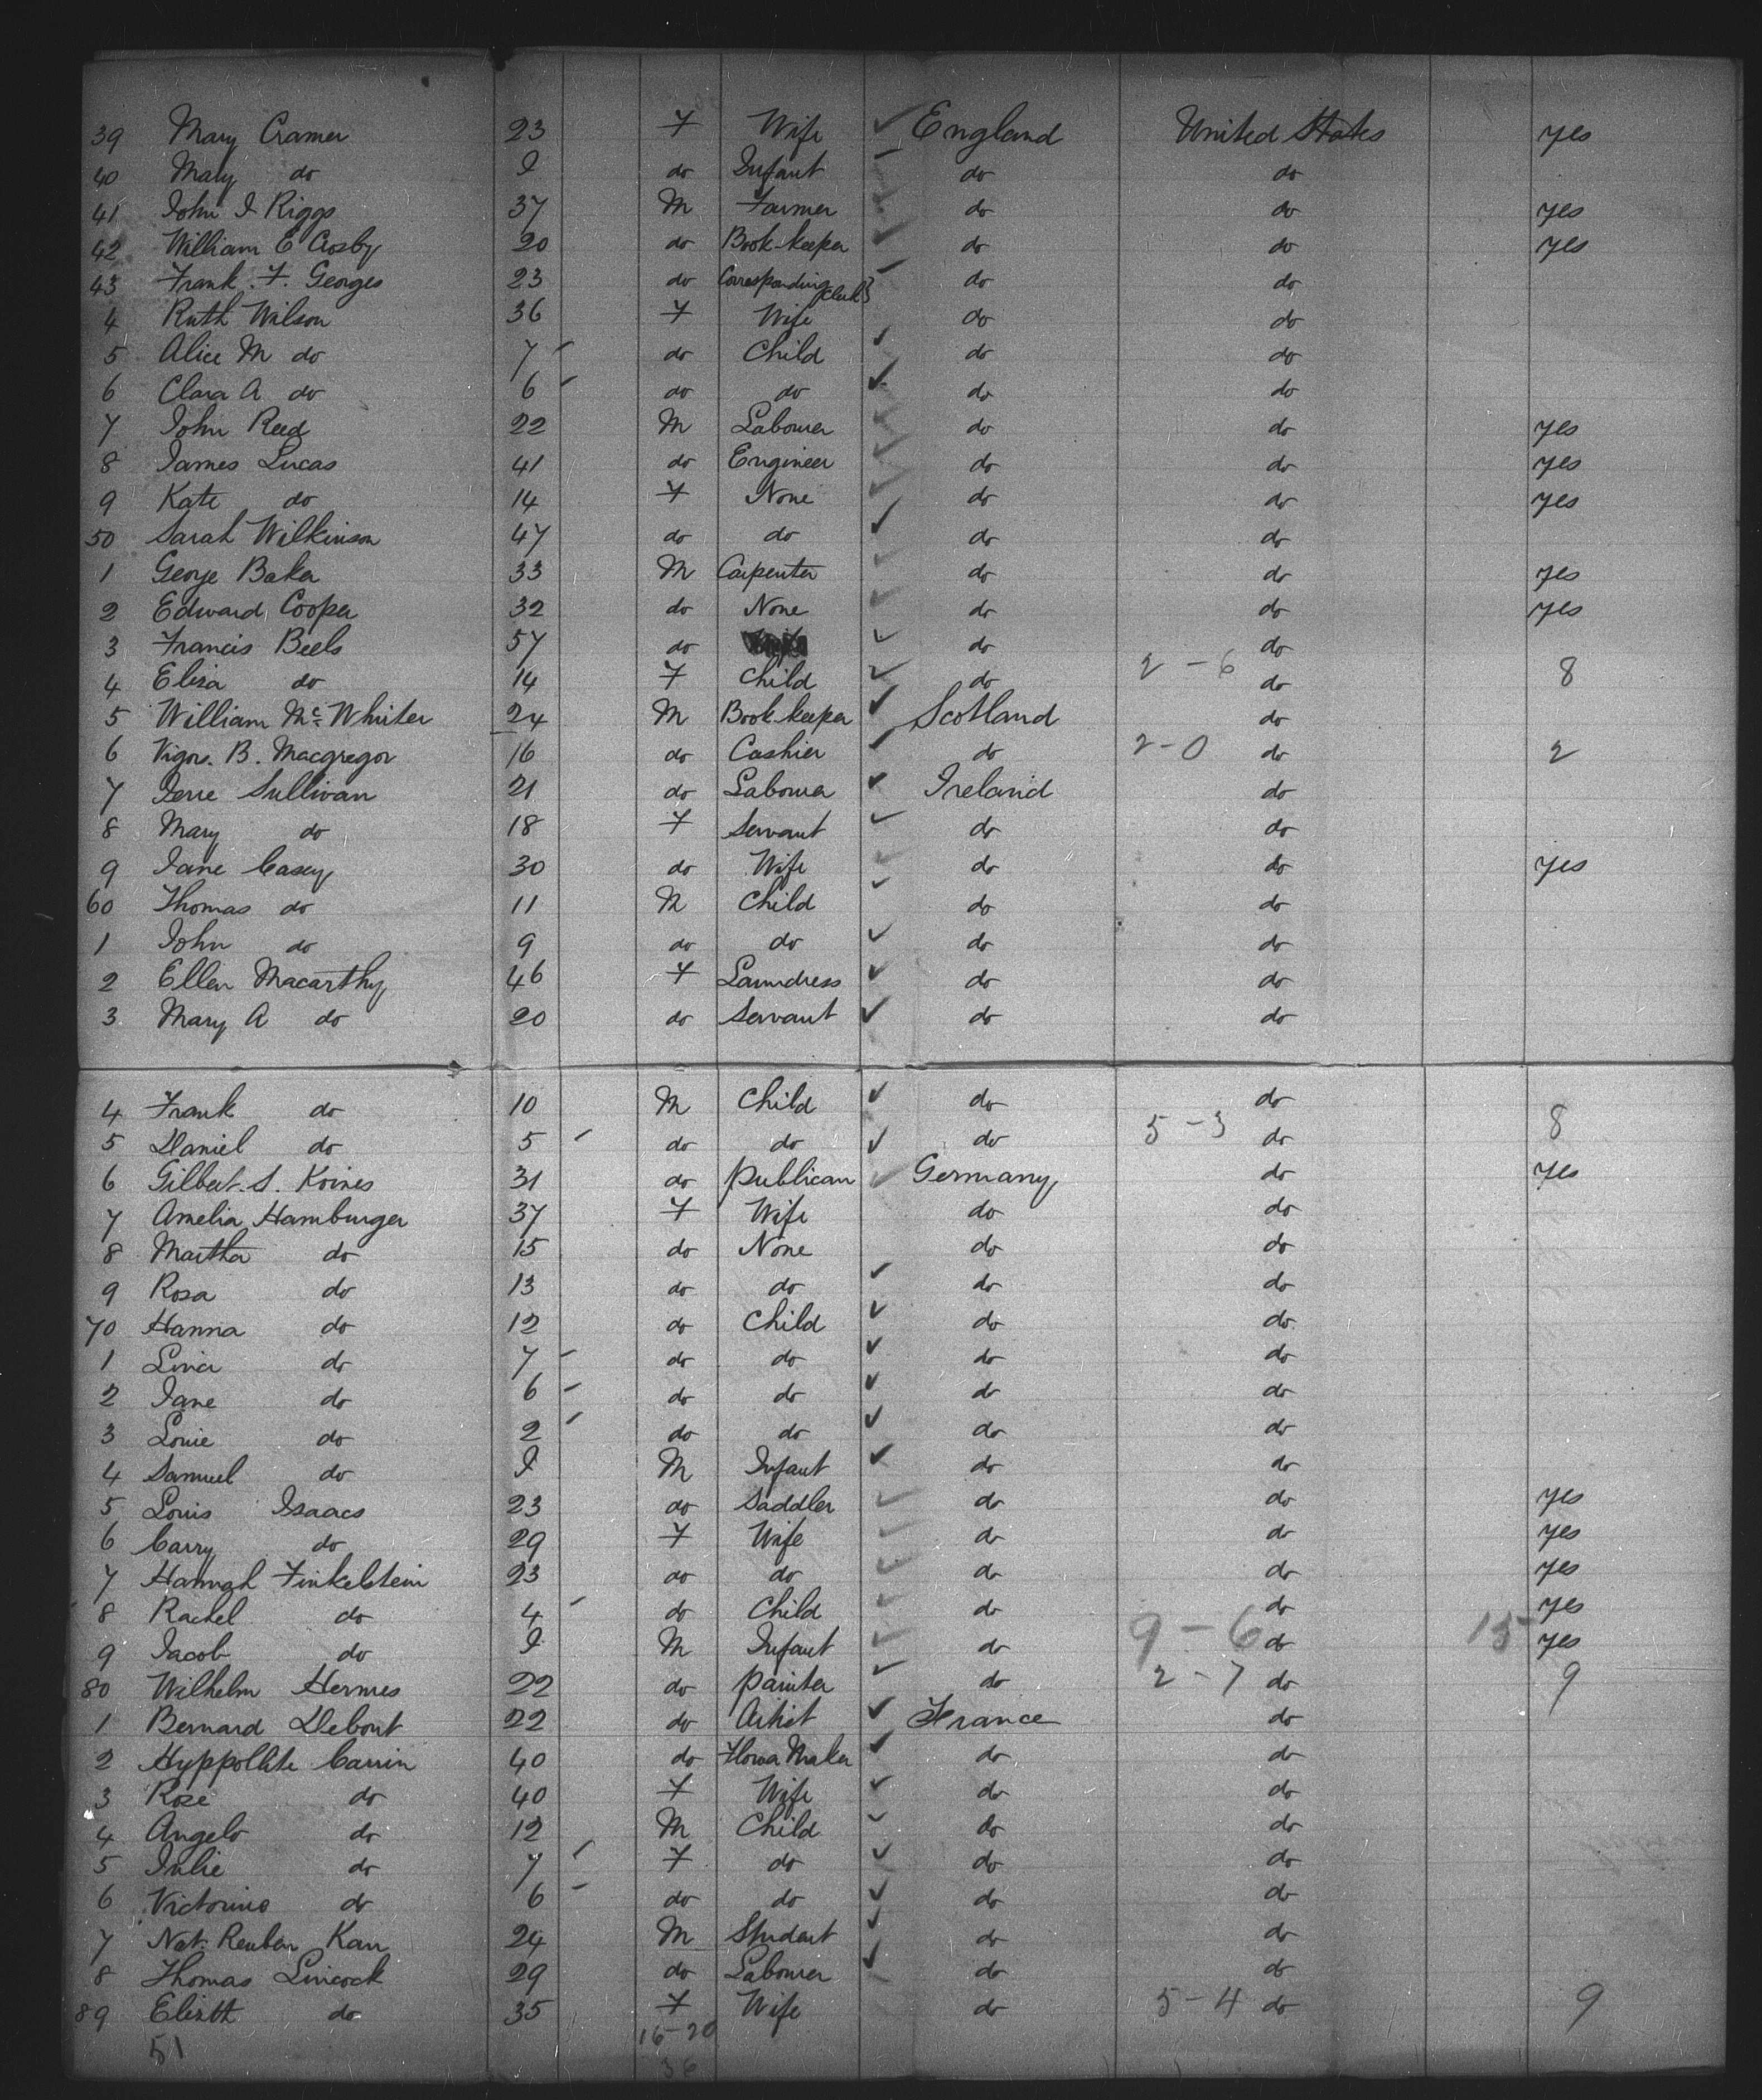 39 Mary Cramer 23 F Wife England United States yes
40 Mary do I do Infant do do
41 John I Riggs 37 M Farmer do do yes
42 William E Crosby 20 do Book-keeper do do yes
43 Frank. F. Georges 23 do Corresponding Clerk} do do
4 Ruth Wilson 36 F Wife do do
5 Alice M do 7 do Child do do
6 Clara A do 6 do do do do
7 John Reed 22 M Labourer do do yes
8 James Lucas 41 do Engineer do do yes
9 Kate do 14 F None do do yes
50 Sarah Wilkinson 47 do do do do
1 George Baker 33 M Carpenter do do yes
2 Edward Cooper 32 do None do do yes
3 Francis Beels 57 do do do
4 Eliza do 14 F Child do 2-6 do 8
5 William Mc Whirter 24 M Book-keeper Scotland do
6 Vigors. B. Macgregor 16 do Cashier do 2-0 do 2
7 Jerre Sullivan 21 do Labourer Ireland do
8 Mary do 18 F Servant do do
9 Jane Casey 30 do Wife do do yes
60 Thomas do 11 M Child do do
1 John do 9 do do do do
2 Ellen Macarthy 46 F Laundress do do
3 Mary A do 20 do Servant do do
4 Frank do 10 M Child do do
5 Daniel do 5 do do do 5-3 do 8
6 Gilbert. S. Koines 31 do Publican Germany do yes
7 Amelia Hamburger 37 F Wife do do
8 Martha do 15 do None do do
9 Rosa do 13 do do do do
70 Hanna do 12 do Child do do
1 Lina do 7 do do do do
2 Jane do 6 do do do do
3 Louie do 2 do do do do
4 Samuel do I M Infant do do
5 Louis Isaacs 23 do Saddler do do yes
6 Carry do 29 F Wife do do yes
7 Hannah Finkelstein 23 do do do do yes
8 Rachel do 4 do Child do do yes
9 Jacob do I M Infant do 9-6 do 15 yes
80 Wilhelm Hermes 22 do Painter do 2-7 do 9
1 Bernard Debont 22 do Artist France do
2 Hyppollite Carrin 40 do Flower Maker do do
3 Rose do 40 F Wife do do
4 Angelo do 12 M Child do do
5 Julie do 7 F do do do
6 Victorine do 6 do do do do
7 Nat. Reuben Kan 24 M Student do do
8 Thomas Lincock 29 do Labourer do do
89 Elizth do 35 F Wife do 5-4 do 9
51 16-20
36